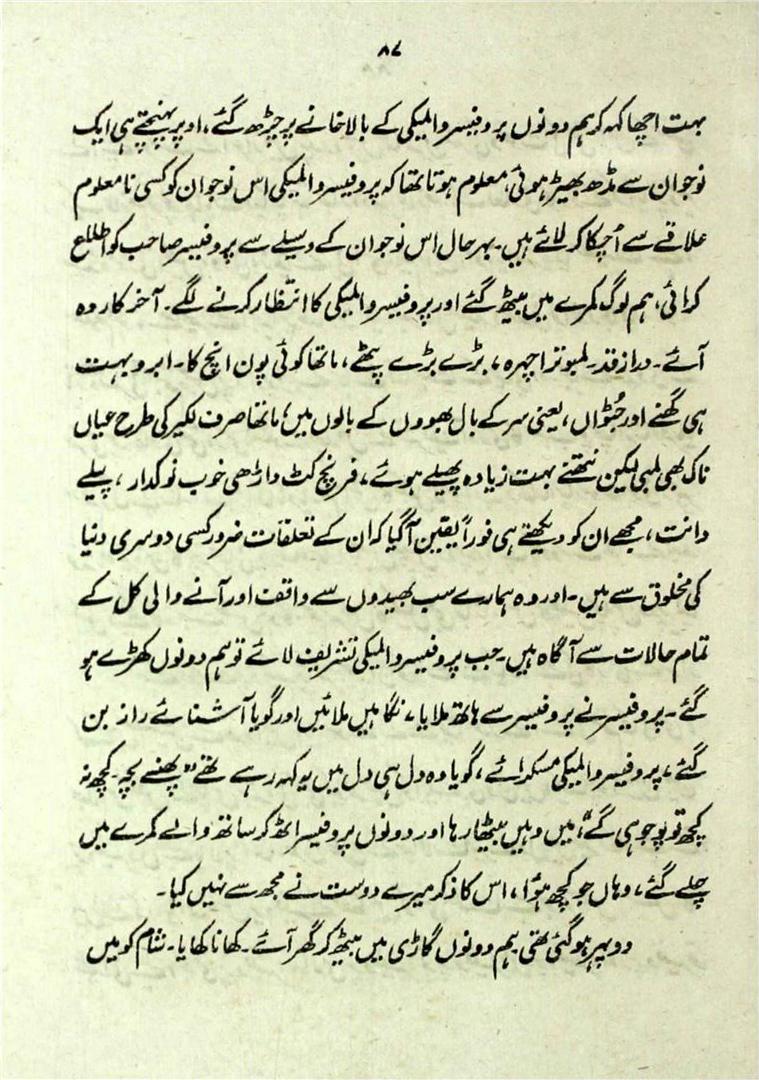 ۸۷
بہت اچھا کہہ کر ہم دونوں پروفیسر والمیکی کے بالاخانے پر چڑھ گئے، اوپر پہنچتے ہی ایک
نوجوان سے مڈھ بھیڑ ہوئی، معلوم ہوتا تھا کہ پروفیسر والمیکی اس نوجوان کو کسی نا معلوم
علاقے سے اُچکا کر لائے ہیں۔ بہرحال اس نوجوان کے وسیلے سے پروفیسر صاحب کو اطلاع
کرائی، ہم لوگ کمرے میں بیٹھ گئے اور پروفیسر والمیکی کا انتظار کرنے لگے۔ آخر کار وہ
آئے۔ دراز قد۔ لمبوترا چہرہ، بڑے بڑے پٹھے، ماتھا کوئی پون انچ کا۔ ابرو بہت
ہی گھنے اور جُٹواں، یعنی سر کے بال بھووں کے بالوں میں؛ ماتھا صرف لکیر کی طرح عیاں
ناک بھی لمبی لیکن نتھنے بہت زیادہ پھیلے ہوئے، فرنچ کٹ داڑھی خوب نوکدار، پیلے
دانت، مجھے ان کو دیکھتے ہی فوراً یقین آ گیا کہ ان کے تعلقات ضرور کسی دوسری دنیا
کی مخلوق سے ہیں۔ اور وہ ہمارے سب بھیدوں سے واقف اور آنے والی کل کے
تمام حالات سے آگاہ ہیں۔ جب پروفیسر والمیکی تشریف لائے تو ہم دونوں کھڑے ہو
گئے۔ پروفیسر نے پروفیسر سے ہاتھ ملایا، نگاہیں ملائیں اور گویا آشنائے راز بن
گئے، پروفیسر والمیکی مسکرائے، گویا وہ دل ہی دل میں یہ کہہ رہے تھے "پھنسے بچہ۔ کچھ نہ
کچھ تو پوجو ہی گے"، میں وہیں بیٹھا رہا اور دونوں پروفیسر اٹھ کر ساتھ والے کمرے میں
چلے گئے، وہاں جو کچھ ہوُا، اس کا ذکر میرے دوست نے مجھ سے نہیں کیا۔
دوپہر ہو گئی تھی ہم دونوں گاڑی میں بیٹھ کر گھر آئے۔ کھانا کھایا۔ شام کو میں